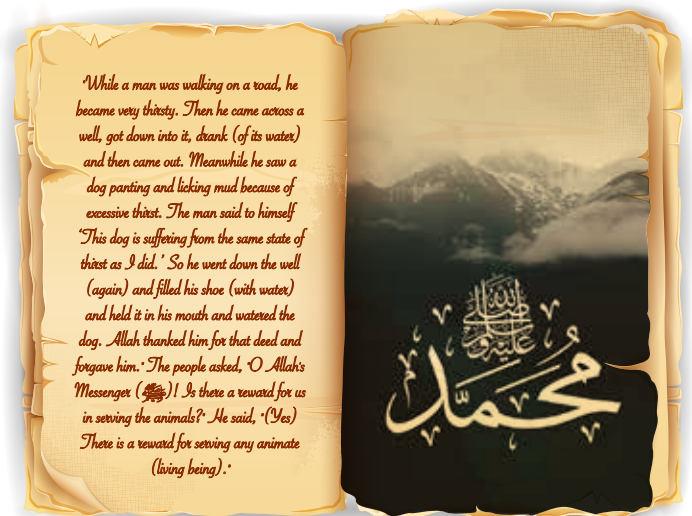 "While a man was walking on a road, he
became very thirsty. Then he came across a
well, got down into it, drank (of its water)
and then came out. Meanwhile he saw a
dog panting and licking mud because of
excessive thirst. The man said to himself
'This dog is suffering from the same state of
thirst as I did.' So he went down the well
(again) and filled his shoe (with water)
and held it in his mouth and watered the
dog. Allah thanked him for that deed and
forgave him." The people asked, "O Allah's
Messenger (ﷺ)! Is there a reward for us
in serving the animals?" He said, "(Yes)
There is a reward for serving any animate
(living being)."
صلى الله عليه وسلم
محمد